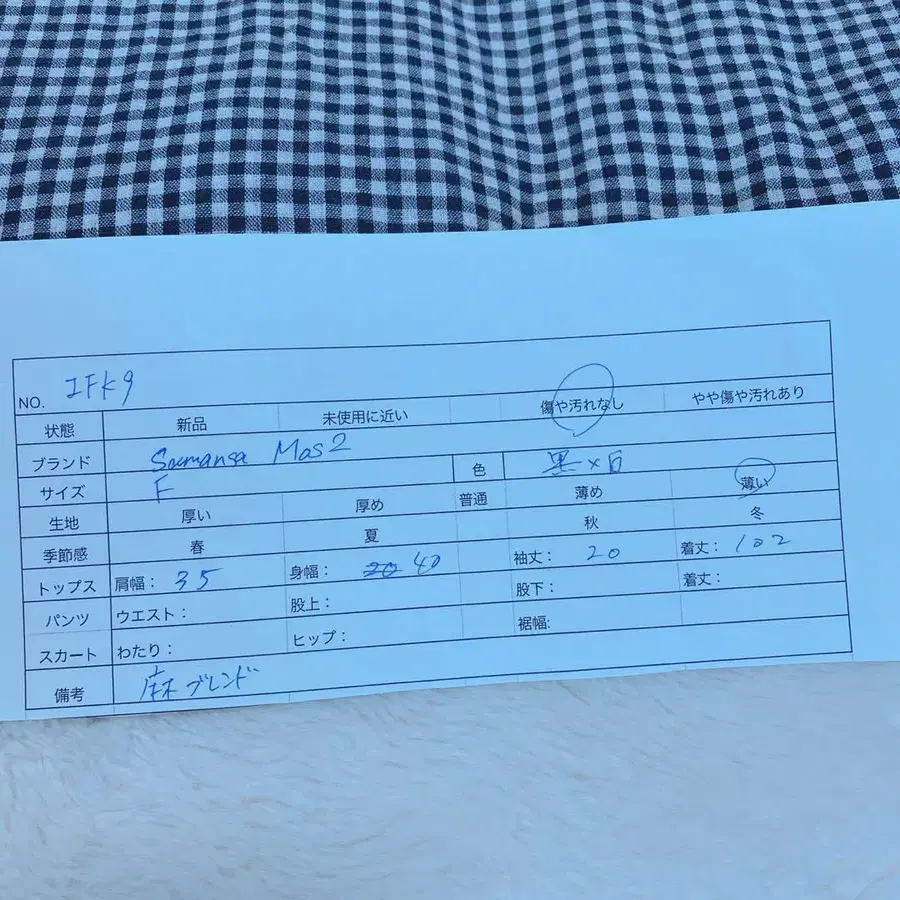 NO. IFK9
状態 新品 未使用に近い 傷や汚れなし やや傷や汚れあり
ブランド Samansa Mos2 色 黒×白
サイズ F
生地 厚い 厚め 普通 薄め 薄い
季節感 春 夏 秋 冬
トップス 肩幅： 35 身幅： 20 40 袖丈： 20 着丈： 102
パンツ ウエスト： 股上： 股下： 着丈：
スカート わたり： ヒップ： 裾幅:
備考 麻ブレンド